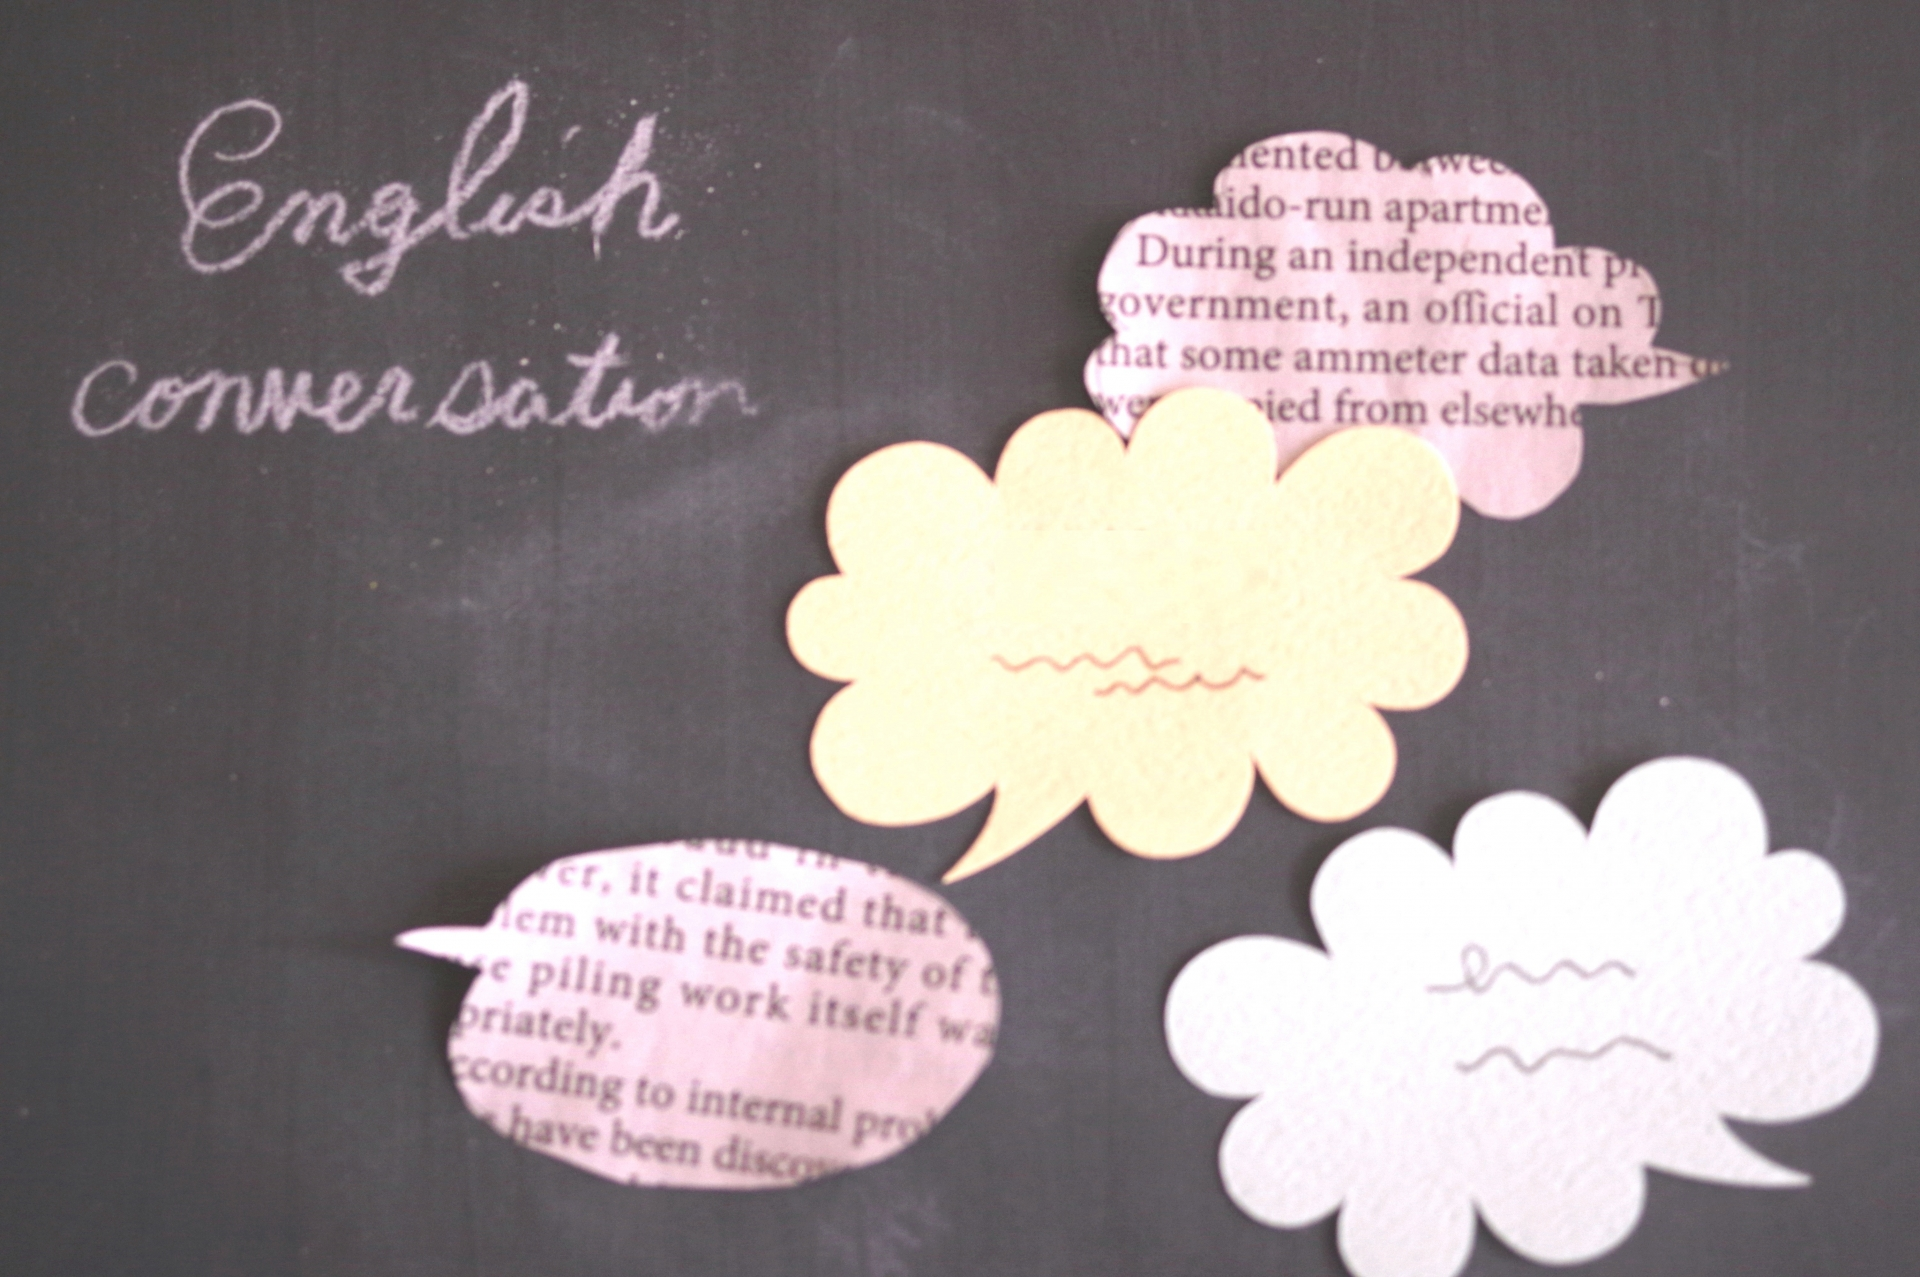 English
conversation
During an independent
government, an official on
that some ammeter data taken
from elsewhe
it claimed that
with the safety of
piling work itself wa
priately.
ccording to internal
have been disco